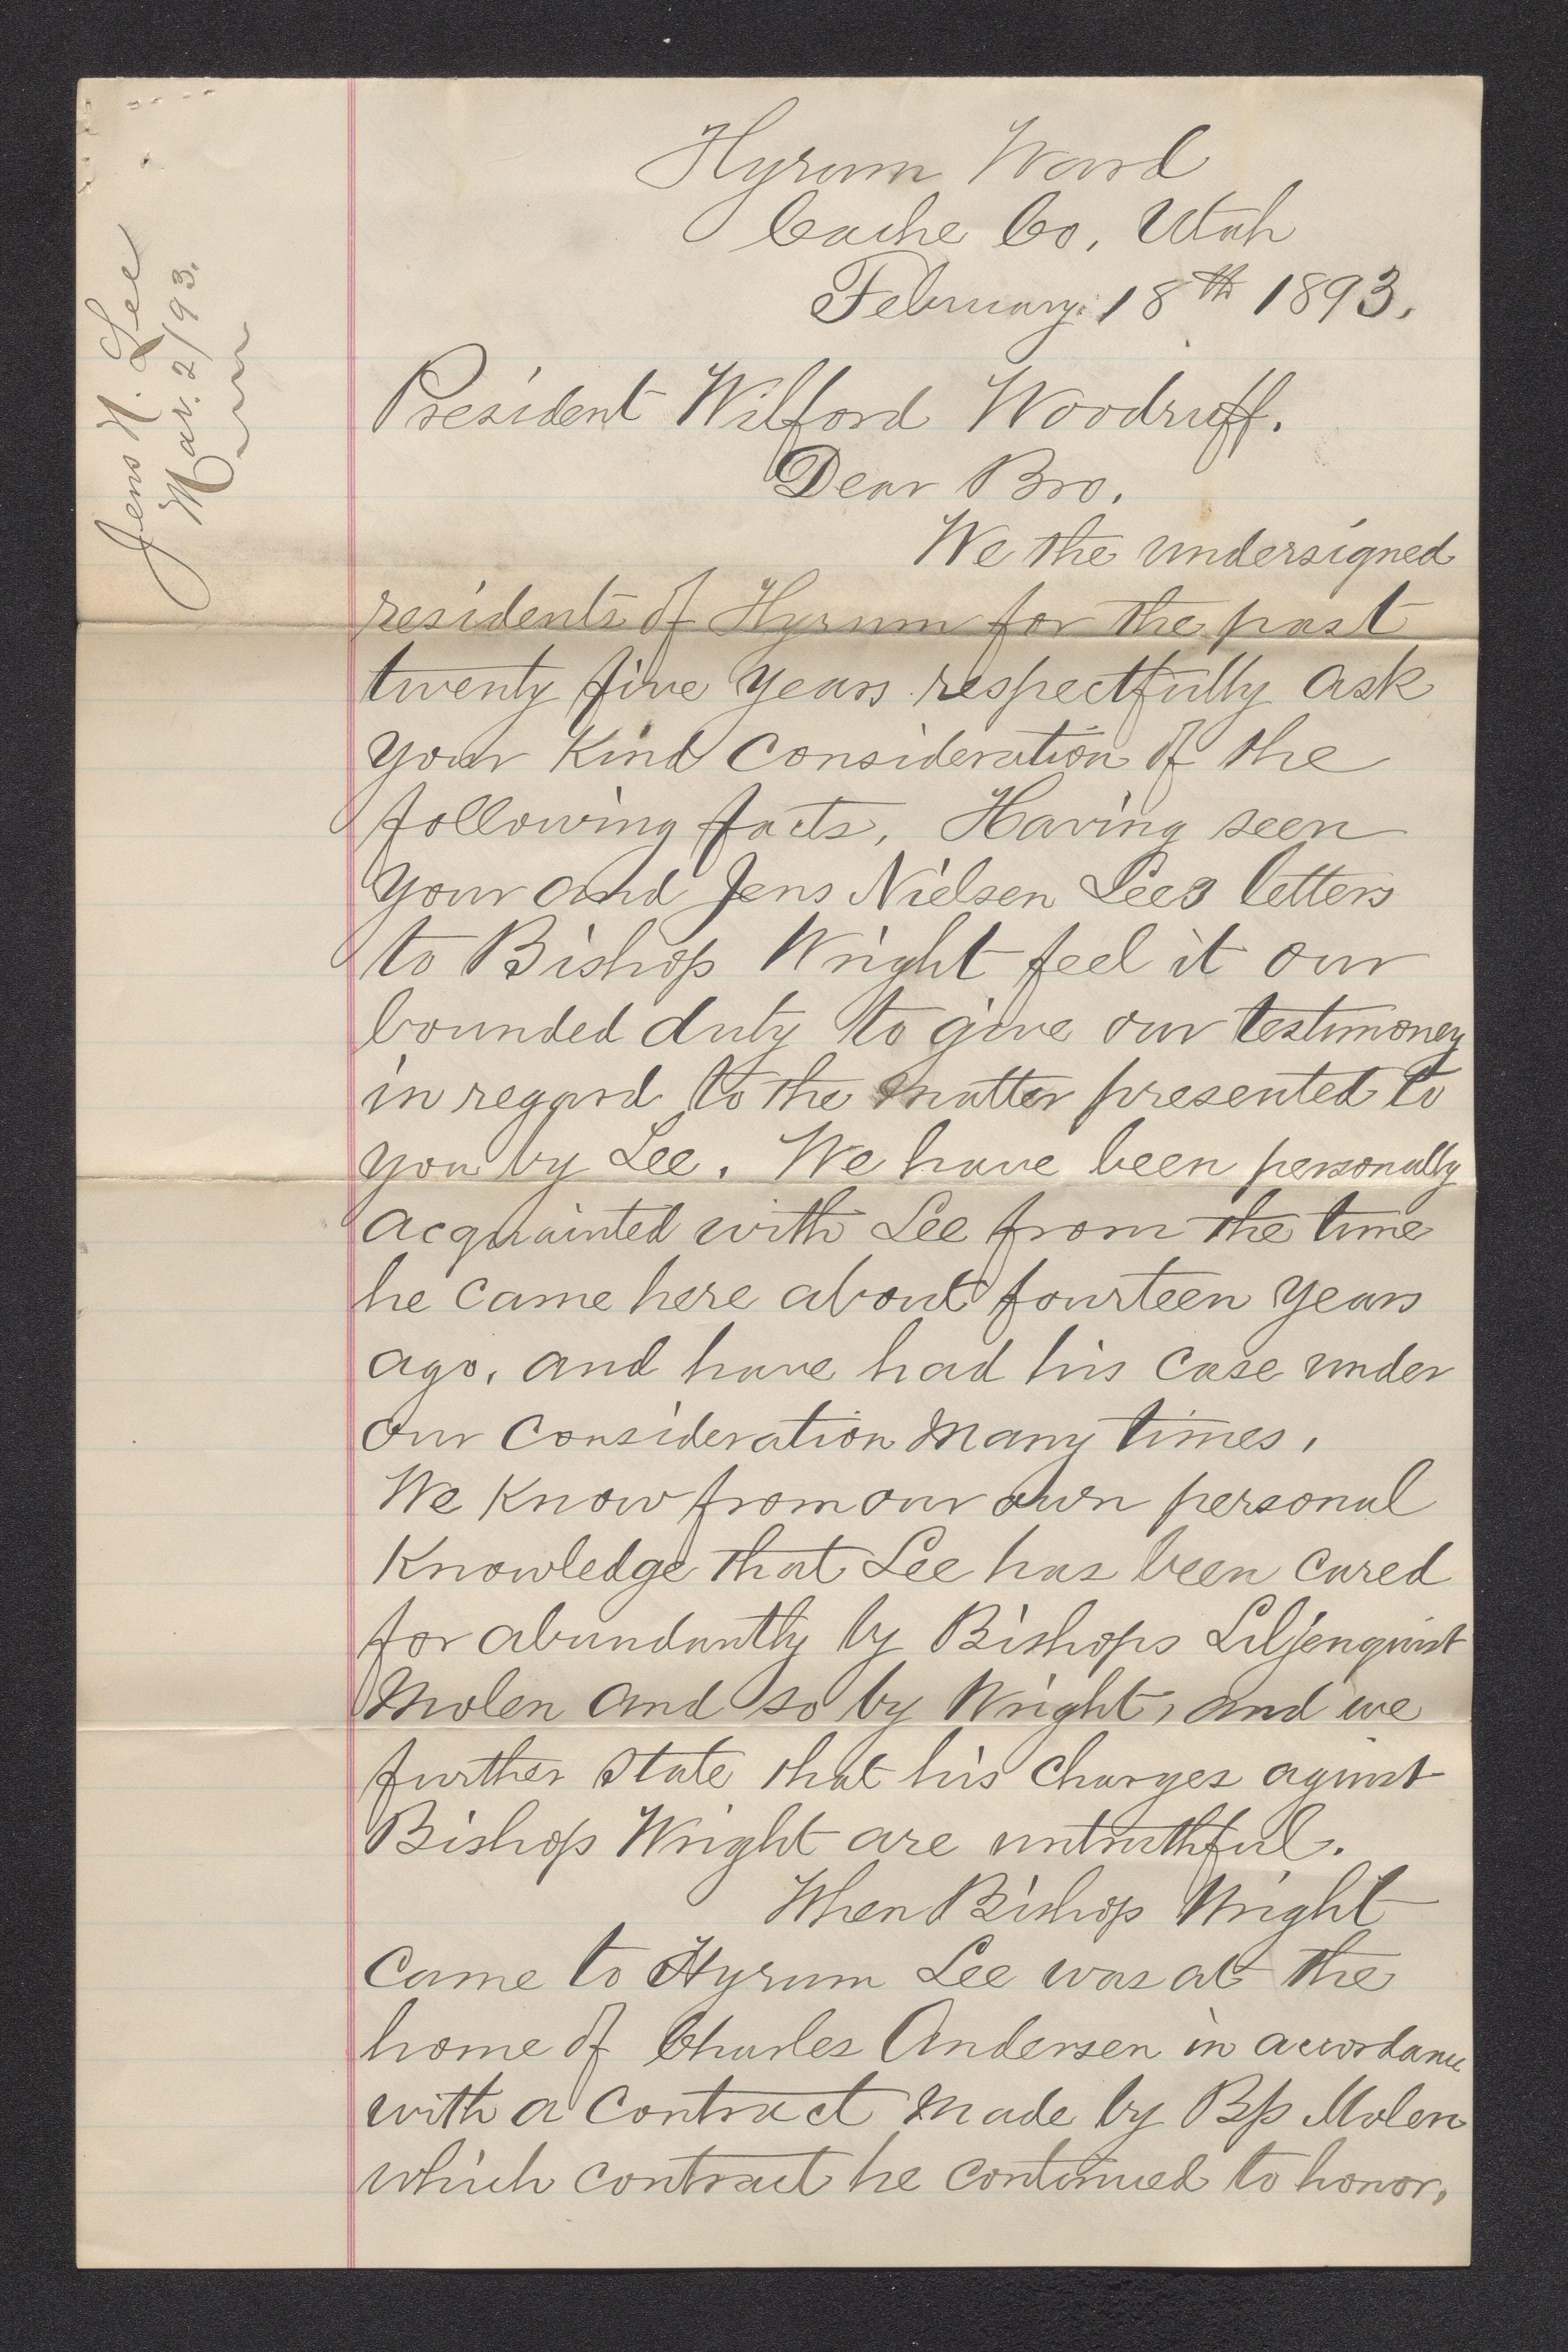 Jens N. Lee
Mar. 2/93.
Hyrum Ward
Cache Co, Utah
February. 18th 1893.
President Wilford Woodruff.
Dear Bro,
We the undersigned
residents of Hyrum for the past
twenty five years respectfully ask
your kind consideration of the
following facts, Having seen
your and Jens Nielsen Lees letters
to Bishop Wright feel it our
bounded duty to give our testimoney
in regard to the matter presented to
you by Lee. We have been personally
acquainted with Lee from the time
he came here about fourteen years
ago, and have had his case under
our consideration many times,
We know from our own personal
knowledge that Lee has been cared
for abundantly by Bishops Liljenquist
Molen and so by Wright, and we
further state that his charges against
Bishop Wright are untruthful.
When Bishop Wright
came to Hyrum Lee was at the
home of Charles Andersen in accordance
with a contract made by Bp Molen
which contract he continued to honor,